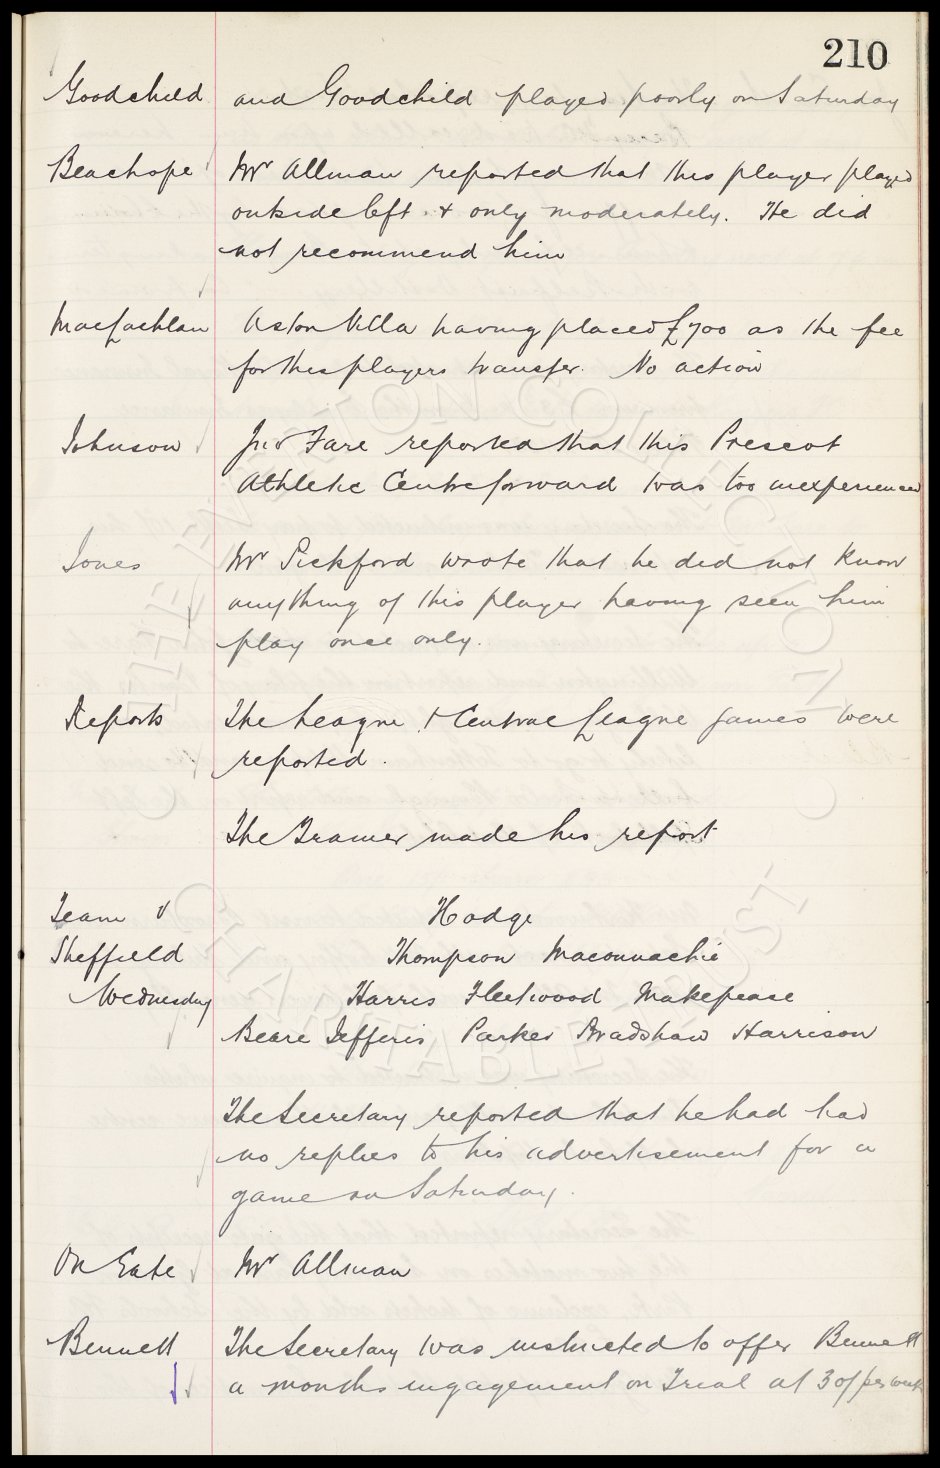 210
Goodchild and Goodchild played poorly on Saturday
Beachope Mr Allman reported that this player played
outside left & only moderately. He did
not recommend him
MacLachlan Aston Villa having placed £700 as the fee
for this players transfer. No action
Johnson Fare reported that this Prescot
Athletic Centre forward was too inexperienced
Jones Mr Pickford wrote that he did not know
anything of this player having seen him
play once only.
Reports The League & Central League games were
reported.
The Trainer made his report
Team v Hodge
Sheffield Thompson Maconnachie
Wednesday Harris Fleetwood Makepeace
Beare Jefferis Parker Bradshaw Harrison
The Secretary reported that he had had
no replies to his advertisement for a
game on Saturday.
On Gate Mr Allman
Bennett The Secretary was instructed to offer Bennett
a months engagement on Trial at 30/ per week
THE EVERTON COLLECTION
CHARITABLE TRUST